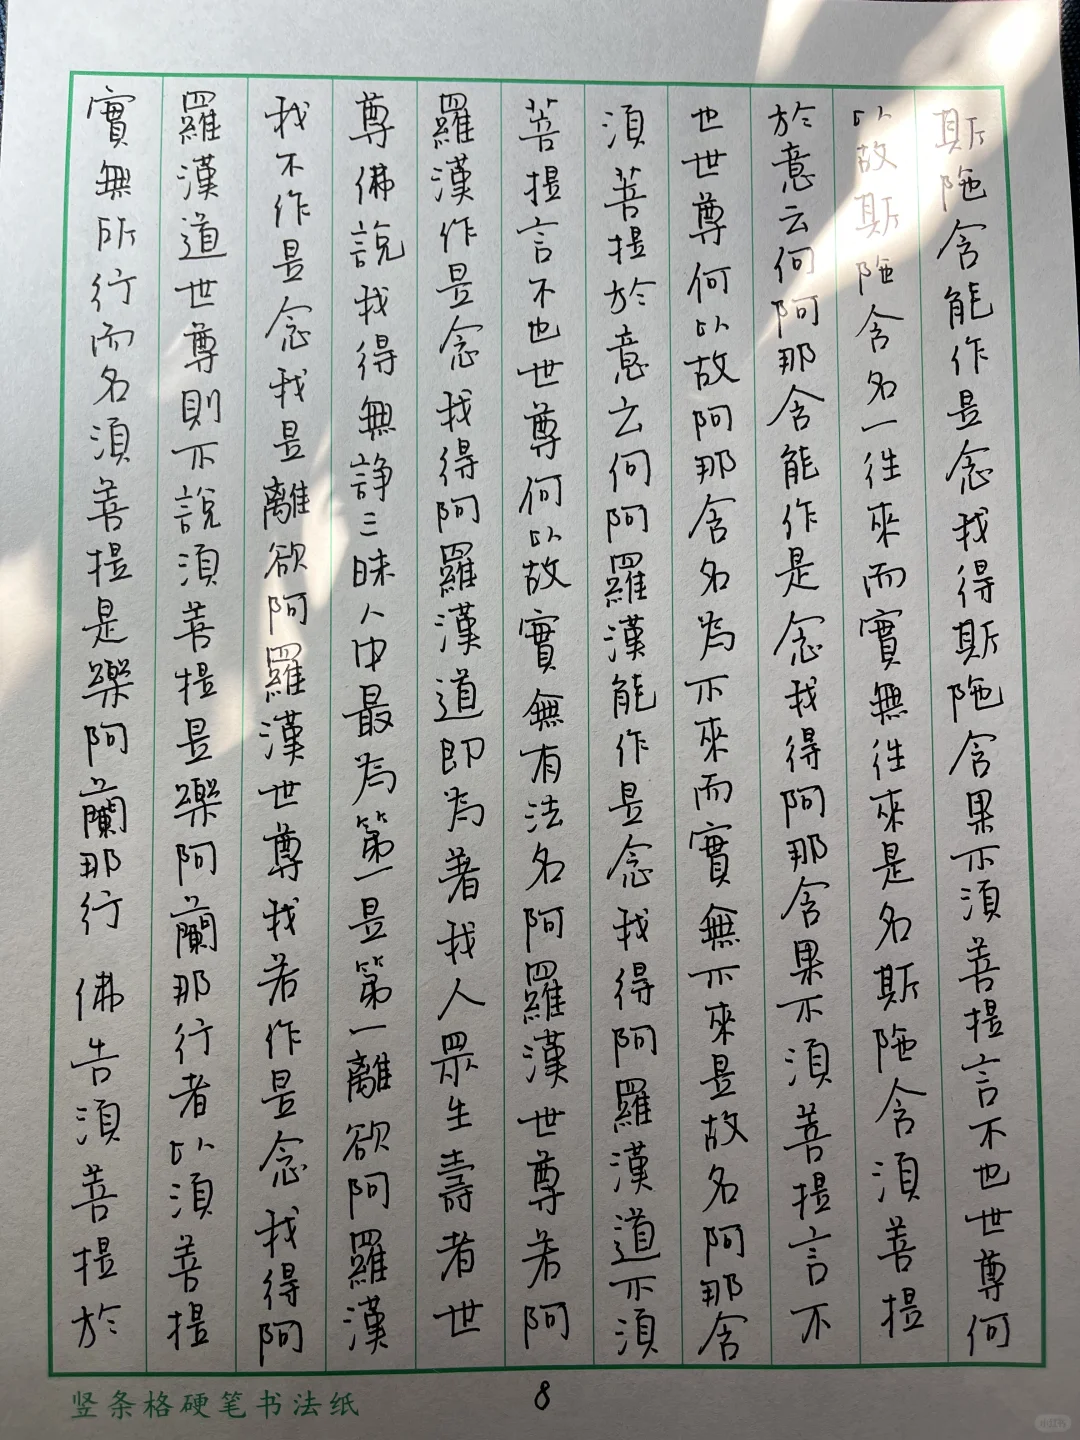 斯陁含能作是念我得斯陁含果不須菩提言不也世尊何
以故斯陁含名一往來而實無往來是名斯陁含須菩提
於意云何阿那含能作是念我得阿那含果不須菩提言不
也世尊何以故阿那含名為不來而實無不來是故名阿那含
須菩提於意云何阿羅漢能作是念我得阿羅漢道不須
菩提言不也世尊何以故實無有法名阿羅漢世尊若阿
羅漢作是念我得阿羅漢道即為著我人眾生壽者世
尊佛說我得無諍三昧人中最為第一是第一離欲阿羅漢
我不作是念我是離欲阿羅漢世尊我若作是念我得阿
羅漢道世尊則不說須菩提是樂阿蘭那行者以須菩提
實無所行而名須菩提是樂阿蘭那行 佛告須菩提於
竖条格硬笔书法纸
8
小红书